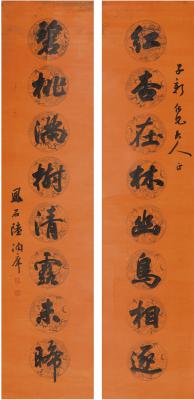 子新仁兄大人正
紅杏在林幽鳥相逐
碧桃滿樹清露未晞
鳳石陸潤庠